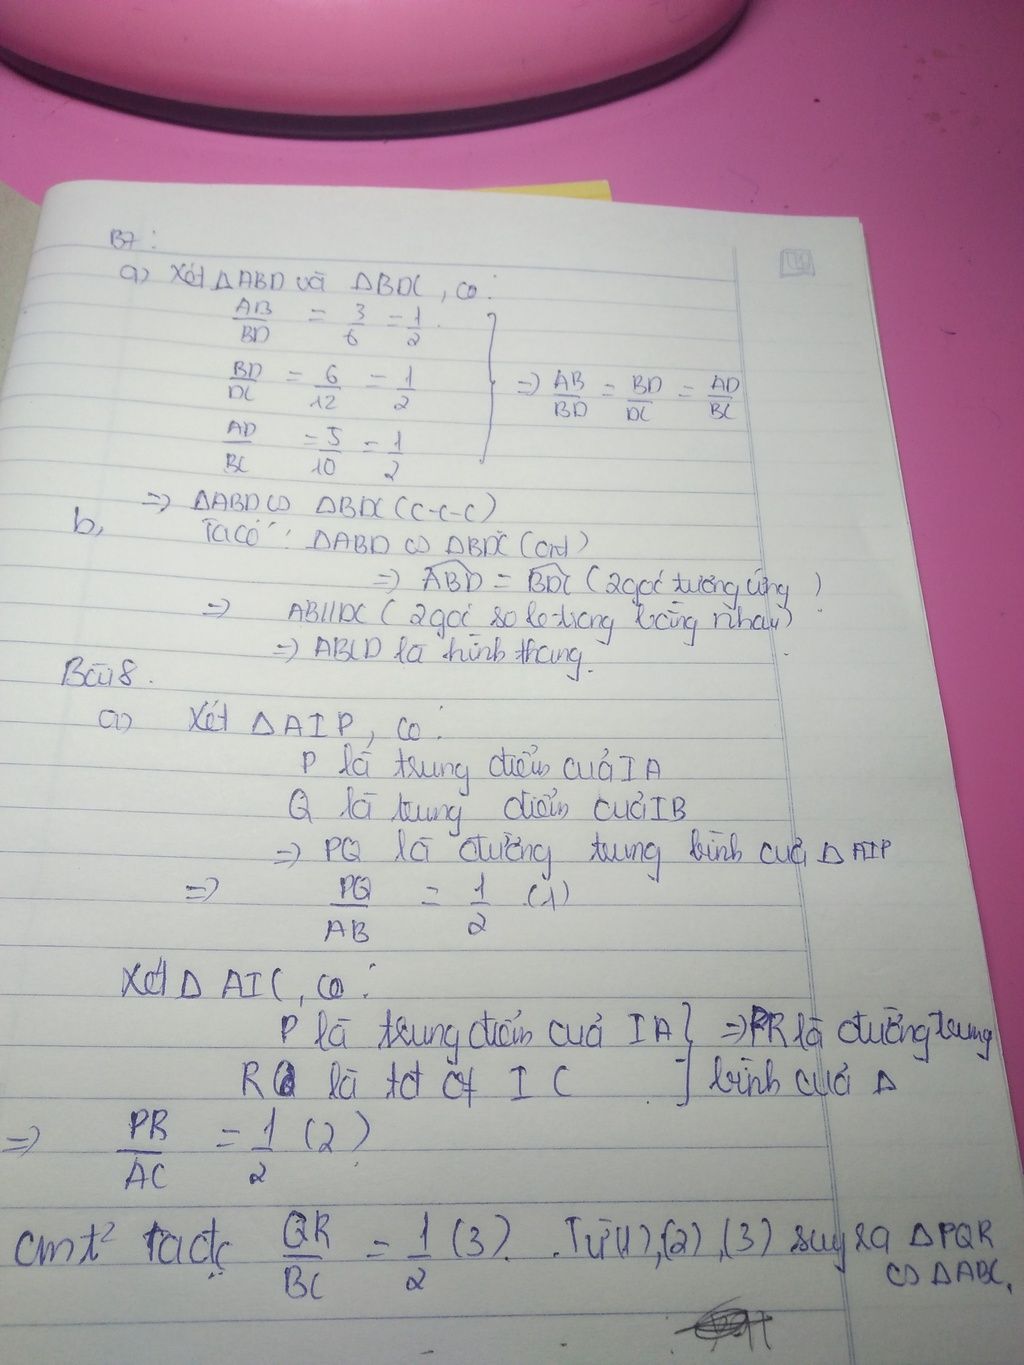 B7:
a) Xét ΔABD và ΔBDC, có:
AB/BD = 3/6 = 1/2
BD/DC = 6/12 = 1/2 => AB/BD = BD/DC = AD/BC
AD/BC = 5/10 = 1/2
=> ΔABD ∽ ΔBDC (c-c-c)
b, Ta có: ΔABD ∽ ΔBDC (cmt)
=> ABD = BDC (2 góc tương ứng)
=> AB//DC (2 góc so le trong bằng nhau)
=> ABCD là hình thang.
Bài 8.
a) Xét ΔAIP, có:
P là trung điểm của IA
Q là trung điểm của IB
=> PQ là đường trung bình của ΔAIP
=> PQ/AB = 1/2 (1)
Xét Δ AIC, có:
P là trung điểm của IA => PR là đường trung
R là tđ of IC bình của Δ
=> PR/AC = 1/2 (2)
cmt² ta đc QR/BC = 1/2 (3). Từ (1), (2), (3) suy ra ΔPQR
∽ ΔABC.